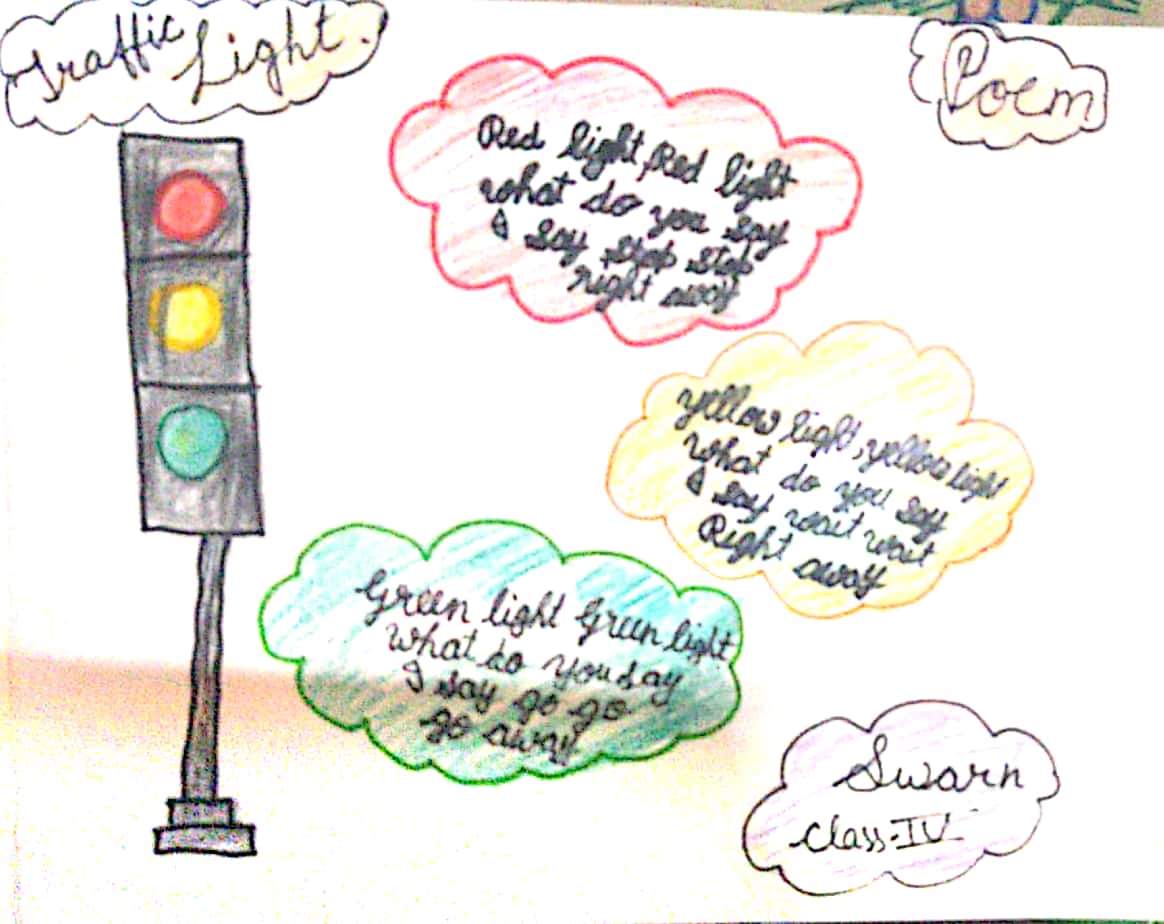 Traffic Light.
Poem
Red light, Red light
what do you say
I say stop stop
right away
yellow light, yellow light
what do you say
I say wait wait
Right away
Green light Green light
what do you say
I say go go
go away
Swarn
class-IV